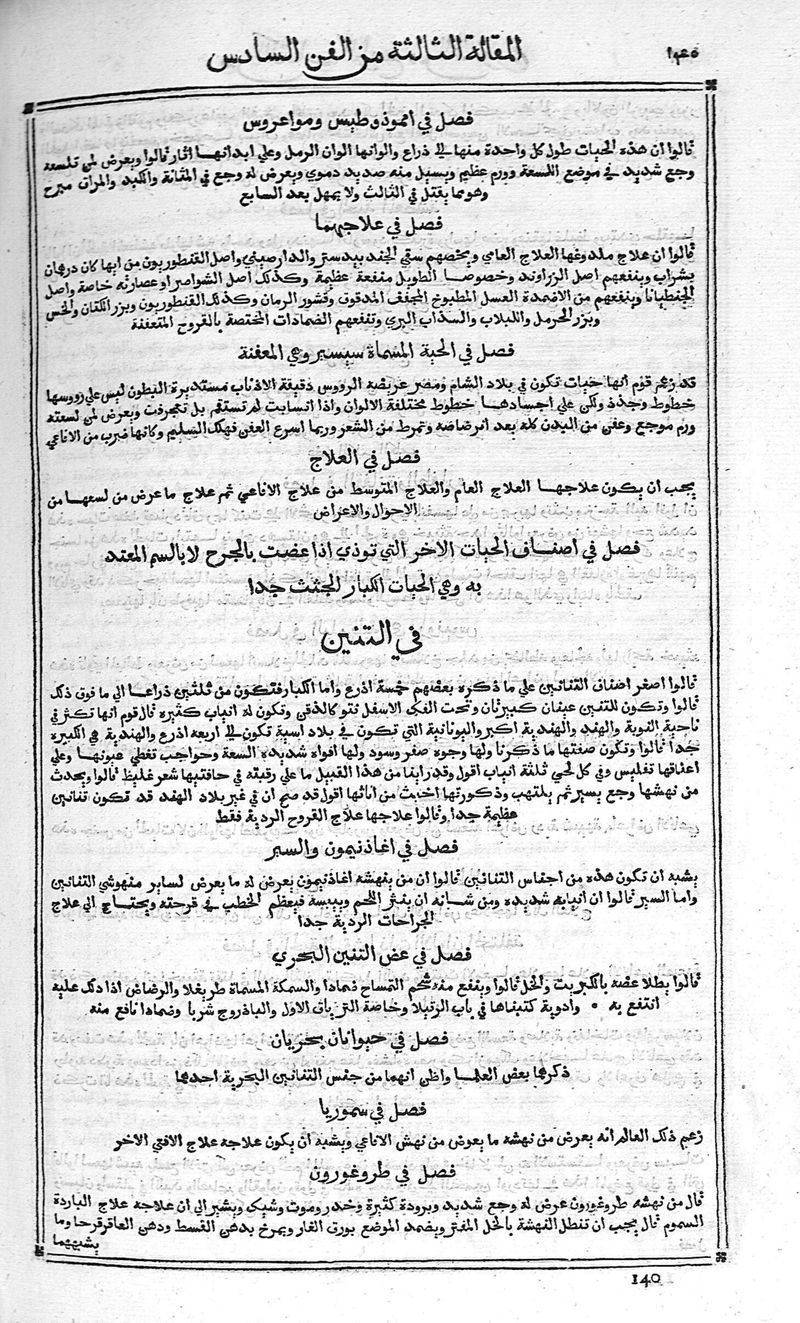 المقالة الثالثة من الفن السادس
فصل في اموذوطيس ومواعروس
قالوا ان هذه الحيات طول كل واحدة منها في ذراع والوانها الوان الرمل وعلي ابدانها اثار قالوا ويعرض لمن تلسعه
وجع شديد في موضع اللسعة وورم عظيم ويسيل منه صديد دموي ويعرض له وجع في المثانة والكبد والمرات مبرح
وهو مما يقتل في الثالث ولا يمهل بعد السابع
فصل في علاجهما
قالوا ان علاج ملدوغها العلاج العامي ويخصهم سقي الجندبيدستر والدارصيني واصل القنطوريون من ايها كان درهمان
بشراب وينفعهم اصل الزراوند وخصوصا الطويل منفعة عظيمة وكذلك اصل الشواصر او عصارته خاصة واصل
الجنطيانا وينفعهم من الاضمدة العسل المطبوخ المجفف المدقوق وقشور الرمان وكذلك القنطوريون وبزر الكتان والخس
وبزر الحرمل واللبلاب والسذاب البري وتنفعهم الضمادات المختصة بالقروح المتعفنة
فصل في الحية المسماة سيسير وهي المعفنة
قد زعم قوم انها حيات تكون في بلاد الشام ومصر عريضة الرووس دقيقة الاذناب مستديرة البطون ليس علي رووسها
خطوط وجدد ولكن علي اجسادها خطوط مختلفة الالوان واذا انسابت لم تستقم بل تحرفت ويعرض لمن لسعته
ورم موجع وعفن من البدن كله بعد انرضاضه وتمرط من الشعر وربما اسرع العفن فهلك السليم وكانها ضرب من الافاعي
فصل في العلاج
يجب ان يكون علاجها العلاج العام والعلاج المتوسط من علاج الافاعي ثم علاج ما عرض من لسعها من
الاحوال والاعراض
فصل في اصناف الحيات الاخر التي توذي اذا عضت بالجرح لا بالسم المعتد
به وهي الحيات الكبار الجثث جدا
في التنين
قالوا اصغر اصناف التنانين علي ما ذكره بعضهم خمسة اذرع واما الكبار فتكون من ثلثين ذراعا الي ما فوق ذلك
قالوا وتكون للتنين عينان كبيرتان وتحت الفك الاسفل نتو كالذقن وتكون له انياب كثيرة قال قوم انها تكثر في
ناحية النوبة والهند والهندية اكبر واليونانية التي تكون في بلاد اسية تكون في اربعه اذرع والهندية هي الكبيره
جدا قالوا وتكون صفتها ما ذكرنا ولها وجوه صفر وسود ولها افواه شديده السعة وحواجب تغطي عيونها وعلي
اعناقها تفليس وفي كل لحي ثلثة انياب اقول وقد راينا من هذا القبيل ما علي رقبته في حافتيها شعر غليظ قالوا ويحدث
من نهشها وجع يسير ثم يلتهب وذكورتها اخبث من اناثها اقول قد صح ان في غير بلاد الهند قد تكون تنانين
عظيمة جدا وقالوا علاجها علاج القروح الردية فقط
فصل في اغاذنيمون والسير
يشبه ان تكون هذه من اجناس التنانين قالوا ان من ينهشه اغاذنيمون يعرض له ما يعرض لساير منهوشي التنانين
واما السير قالوا ان انيابه شديده ومن شانه ان ينثر اللحم وييبسة فيعظم الخطب في قرحته ويحتاج الي علاج
الجراحات الردية جدا
فصل في عض التنين البحري
قالوا يطلا عضه بالكبريت والخل قالوا وينفع منه شحم التمساح ضمادا والسمكة المسماة طريغلا والرصاص اذا دلك عليه
انتفع به • وادوية كتبناها في باب الرتيلا وخاصة الترياق الاول والباذروج شربا وضمادا نافع منه
فصل في حيوانان بحريان
ذكرهما بعض العلما واظن انهما من جنس التنانين البحرية احدهما
فصل في سموريا
زعم ذلك العالم انه يعرض من نهشه ما يعرض من نهش الافاعي ويشبه ان يكون علاجه علاج الافعي الاخر
فصل في طروغورون
قال من نهشه طروغورون عرض له وجع شديد وبرودة كثيرة وخدر وموت وشيك ويشير الي ان علاجه علاج الباردة
السموم قال يجب ان تنطل النهشة بالخل المفتر ويضمد الموضع بورق الغار ويمرخ بدهن القسط ودهن العاقرقرحا وما
يشبههما
140